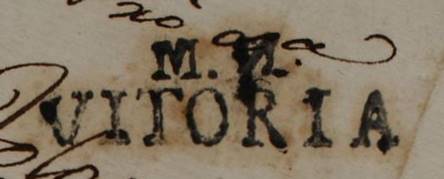 M. N.
VITORIA